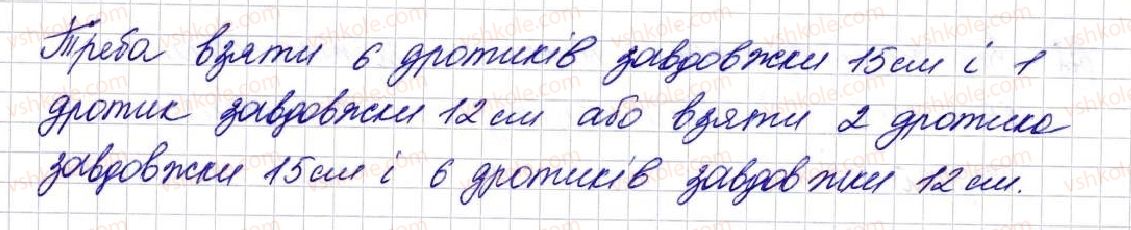 Треба взяти 6 дротиків завдовжки 15 см і 1
дротик завдовжки 12 см або взяти 2 дротика
завдовжки 15 см і 6 дротиків завдовжки 12 см.